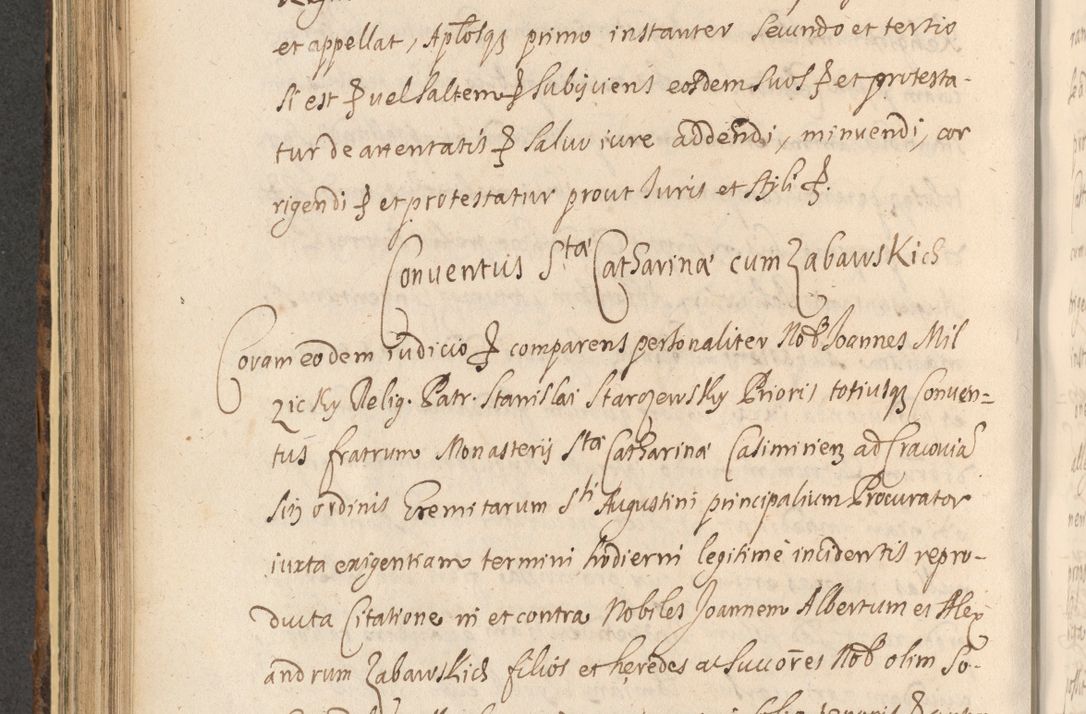 et appellat, Aplosq primo instanter Secundo et tertio
si est ꝑ vel saltem ꝑ Subijciens eosdem suos ꝑ et protesta-
tur de attentatis ꝑ Salvo iure addendi, minuendi, cor
rigendi ꝑ et protestatur prout Iuris et Stjli ꝑ.
Conventus Stæ Catharinæ cum Zabawskich
Coram eodem iudicio ꝑ comparens personaliter Nob Ioannes Mil
zicky Relig. Patr. Stanislai Starozewsky Prioris totiusq Conven=
tus fratrum Monasterij Stæ Catharinæ Casimirien ad Cracoviã
Sitj ordinis Eremitarum Sti Augustini principalium Procurator
iuxta exigentiam termini hodierni legitime incidentis repro-
ducta Citatione in et contra Nobiles Joannem Albertum et Alex
andrum Zabawskich filios et heredes ac Succores Nob olim So-